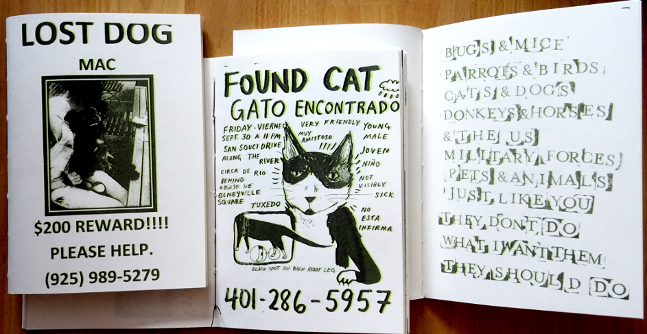 LOST DOG
MAC
$200 REWARD!!!!
PLEASE HELP.
(925) 989-5279
FOUND CAT
GATO ENCONTRADO
FRIDAY-VIERNES
SEPT. 30 A 11 PM
SAN SOUCI DRIVE
ALONG THE
RIVER
CIRCA DE
RIO
BEHIND
ABAJO DE
OLNEYVILLE
SQUARE
TUXEDO
VERY FRIENDLY
MUY
AMISTOSO
YOUNG
MALE
JOVEN
NIÑO
NOT
VISIBLY
SICK
NO
ESTA
INFIRMA
BLACK SPOT ON BACK RIGHT LEG
401-286-5957
BUGS & MICE
PARROTS & BIRDS
CATS & DOGS
DONKEYS & HORSES
& THE US
MILITARY FORCES
PETS & ANIMALS
JUST LIKE YOU
THEY DON'T DO
WHAT I WANT THEM
THEY SHOULD DO